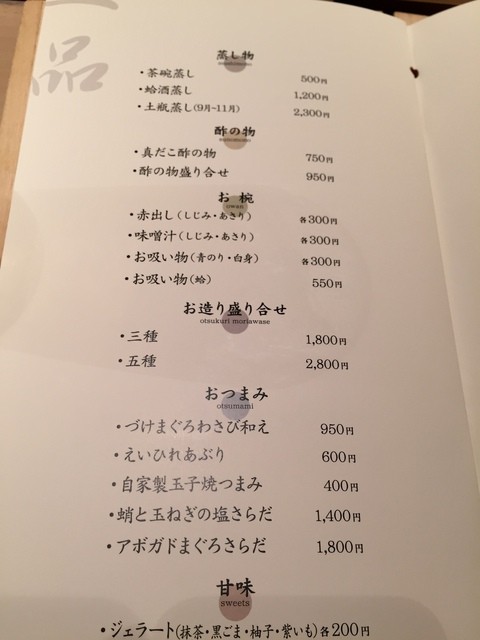 一品
蒸し物
mushimono
・茶碗蒸し 500円
・蛤酒蒸し 1,200円
・土瓶蒸し(9月~11月) 2,300円
酢の物
sunomono
・真だこ酢の物 750円
・酢の物盛り合せ 950円
お椀
owan
・赤出し(しじみ・あさり) 各300円
・味噌汁(しじみ・あさり) 各300円
・お吸い物(青のり・白身) 各300円
・お吸い物(蛤) 550円
お造り盛り合せ
otsukuri moriawase
・三種 1,800円
・五種 2,800円
おつまみ
otsumami
・づけまぐろわさび和え 950円
・えいひれあぶり 600円
・自家製玉子焼つまみ 400円
・蛸と玉ねぎの塩さらだ 1,400円
・アボガドまぐろさらだ 1,800円
甘味
sweets
・ジェラート(抹茶・黒ごま・柚子・紫いも) 各200円